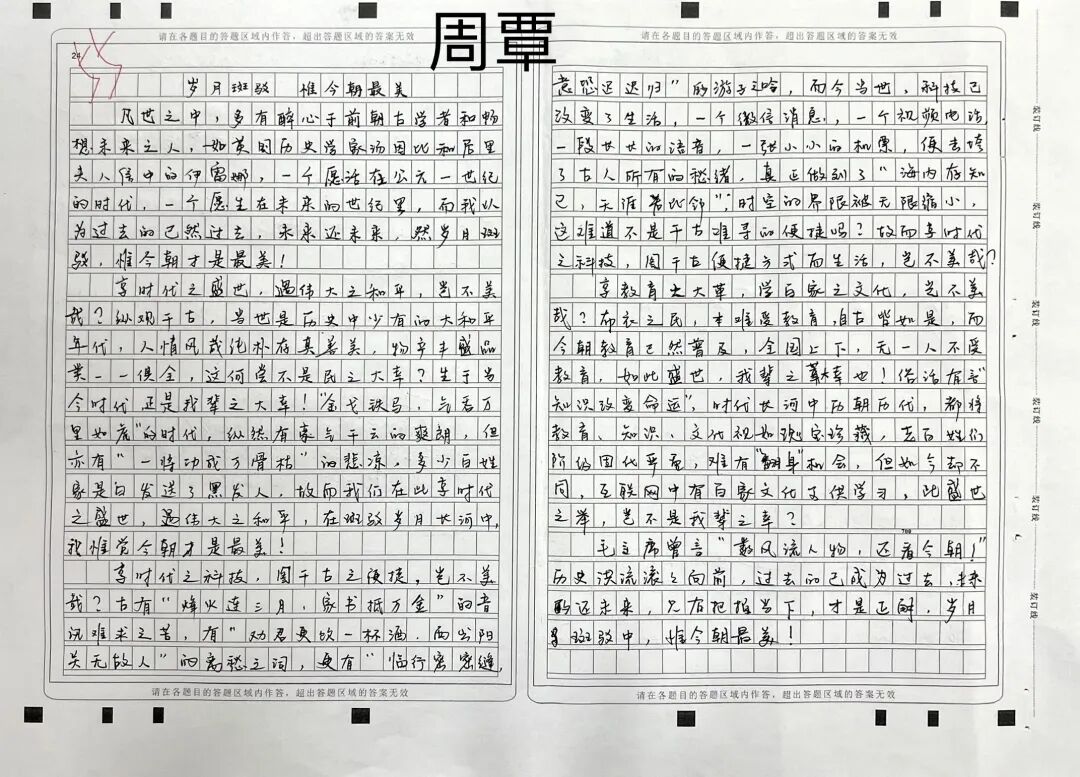 周覃
请在各题目的答题区域内作答，超出答题区域的答案无效
岁月斑驳 惟今朝最美
凡世之中，多有醉心于前朝古学者和畅
想未来之人，如英国历史学家汤因比和居里
夫人信中的伊雷娜，一个愿活在公元一世纪
的时代，一个愿生在未来的世纪里，而我认
为过去的已然过去，未来还未来，然岁月斑
驳，惟今朝才是最美！
享时代之盛世，遇伟大之和平，岂不美
哉？纵观千古，当世是历史中少有的大和平
年代，人情风哉纯朴存真善美，物产丰盛品
类一一俱全，这何尝不是民之大幸？生于当
今时代正是我辈之大幸！“金戈铁马，气吞万
里如虎”的时代，纵然有豪气干云的爽朗，但
亦有“一将功成万骨枯”的悲凉，多少百姓
家是白发送了黑发人，故而我们在此享时代
之盛世，遇伟大之和平，在斑驳岁月长河中，
我惟觉今朝才是最美！
享时代之科技，周千古之便捷，岂不美
哉？古有“烽火连三月，家书抵万金”的音
讯难求之苦，有“劝君更饮一杯酒，西出阳
关无故人”的离愁之词，更有“临行密密缝，
请在各题目的答题区域内作答，超出答题区域的答案无效
请在各题目的答题区域内作答，超出答题区域的答案无效
意恐迟迟归”的游子之吟，而今当世，科技已
改变了生活，一个微信消息，一个视频电话，
一段长长的语音，一张小小的机票，便击垮
了古人所有的愁绪，真正做到了“海内存知
己，天涯若比邻”；时空的界限被无限缩小，
这难道不是千古难寻的便捷吗？故而享时代
之科技，周千古便捷方式而生活，岂不美哉？
享教育之大革，学百家之文化，岂不美
哉？布衣之民，本难受教育，自古皆如是，而
今朝教育已然普及，全国上下，无一人不受
教育，如此盛世，我辈之幸也！俗话有言“
知识改变命运”，时代长河中历朝历代，都将
教育、知识、文化视如瑰宝珍藏，去百姓们
阶级固化严重，难有“翻身”机会，但如今却不
同，互联网中有百家文化可供学习，此盛世
之举，岂不是我辈之幸？
700
毛主席曾言“数风流人物，还看今朝！”
历史洪流滚滚向前，过去的已成为过去，未来
还未来，只有把握当下，才是正解，岁月
斑驳中，惟今朝最美！
请在各题目的答题区域内作答，超出答题区域的答案无效
装订线
装订线
装订线
装订线
装订线
装订线